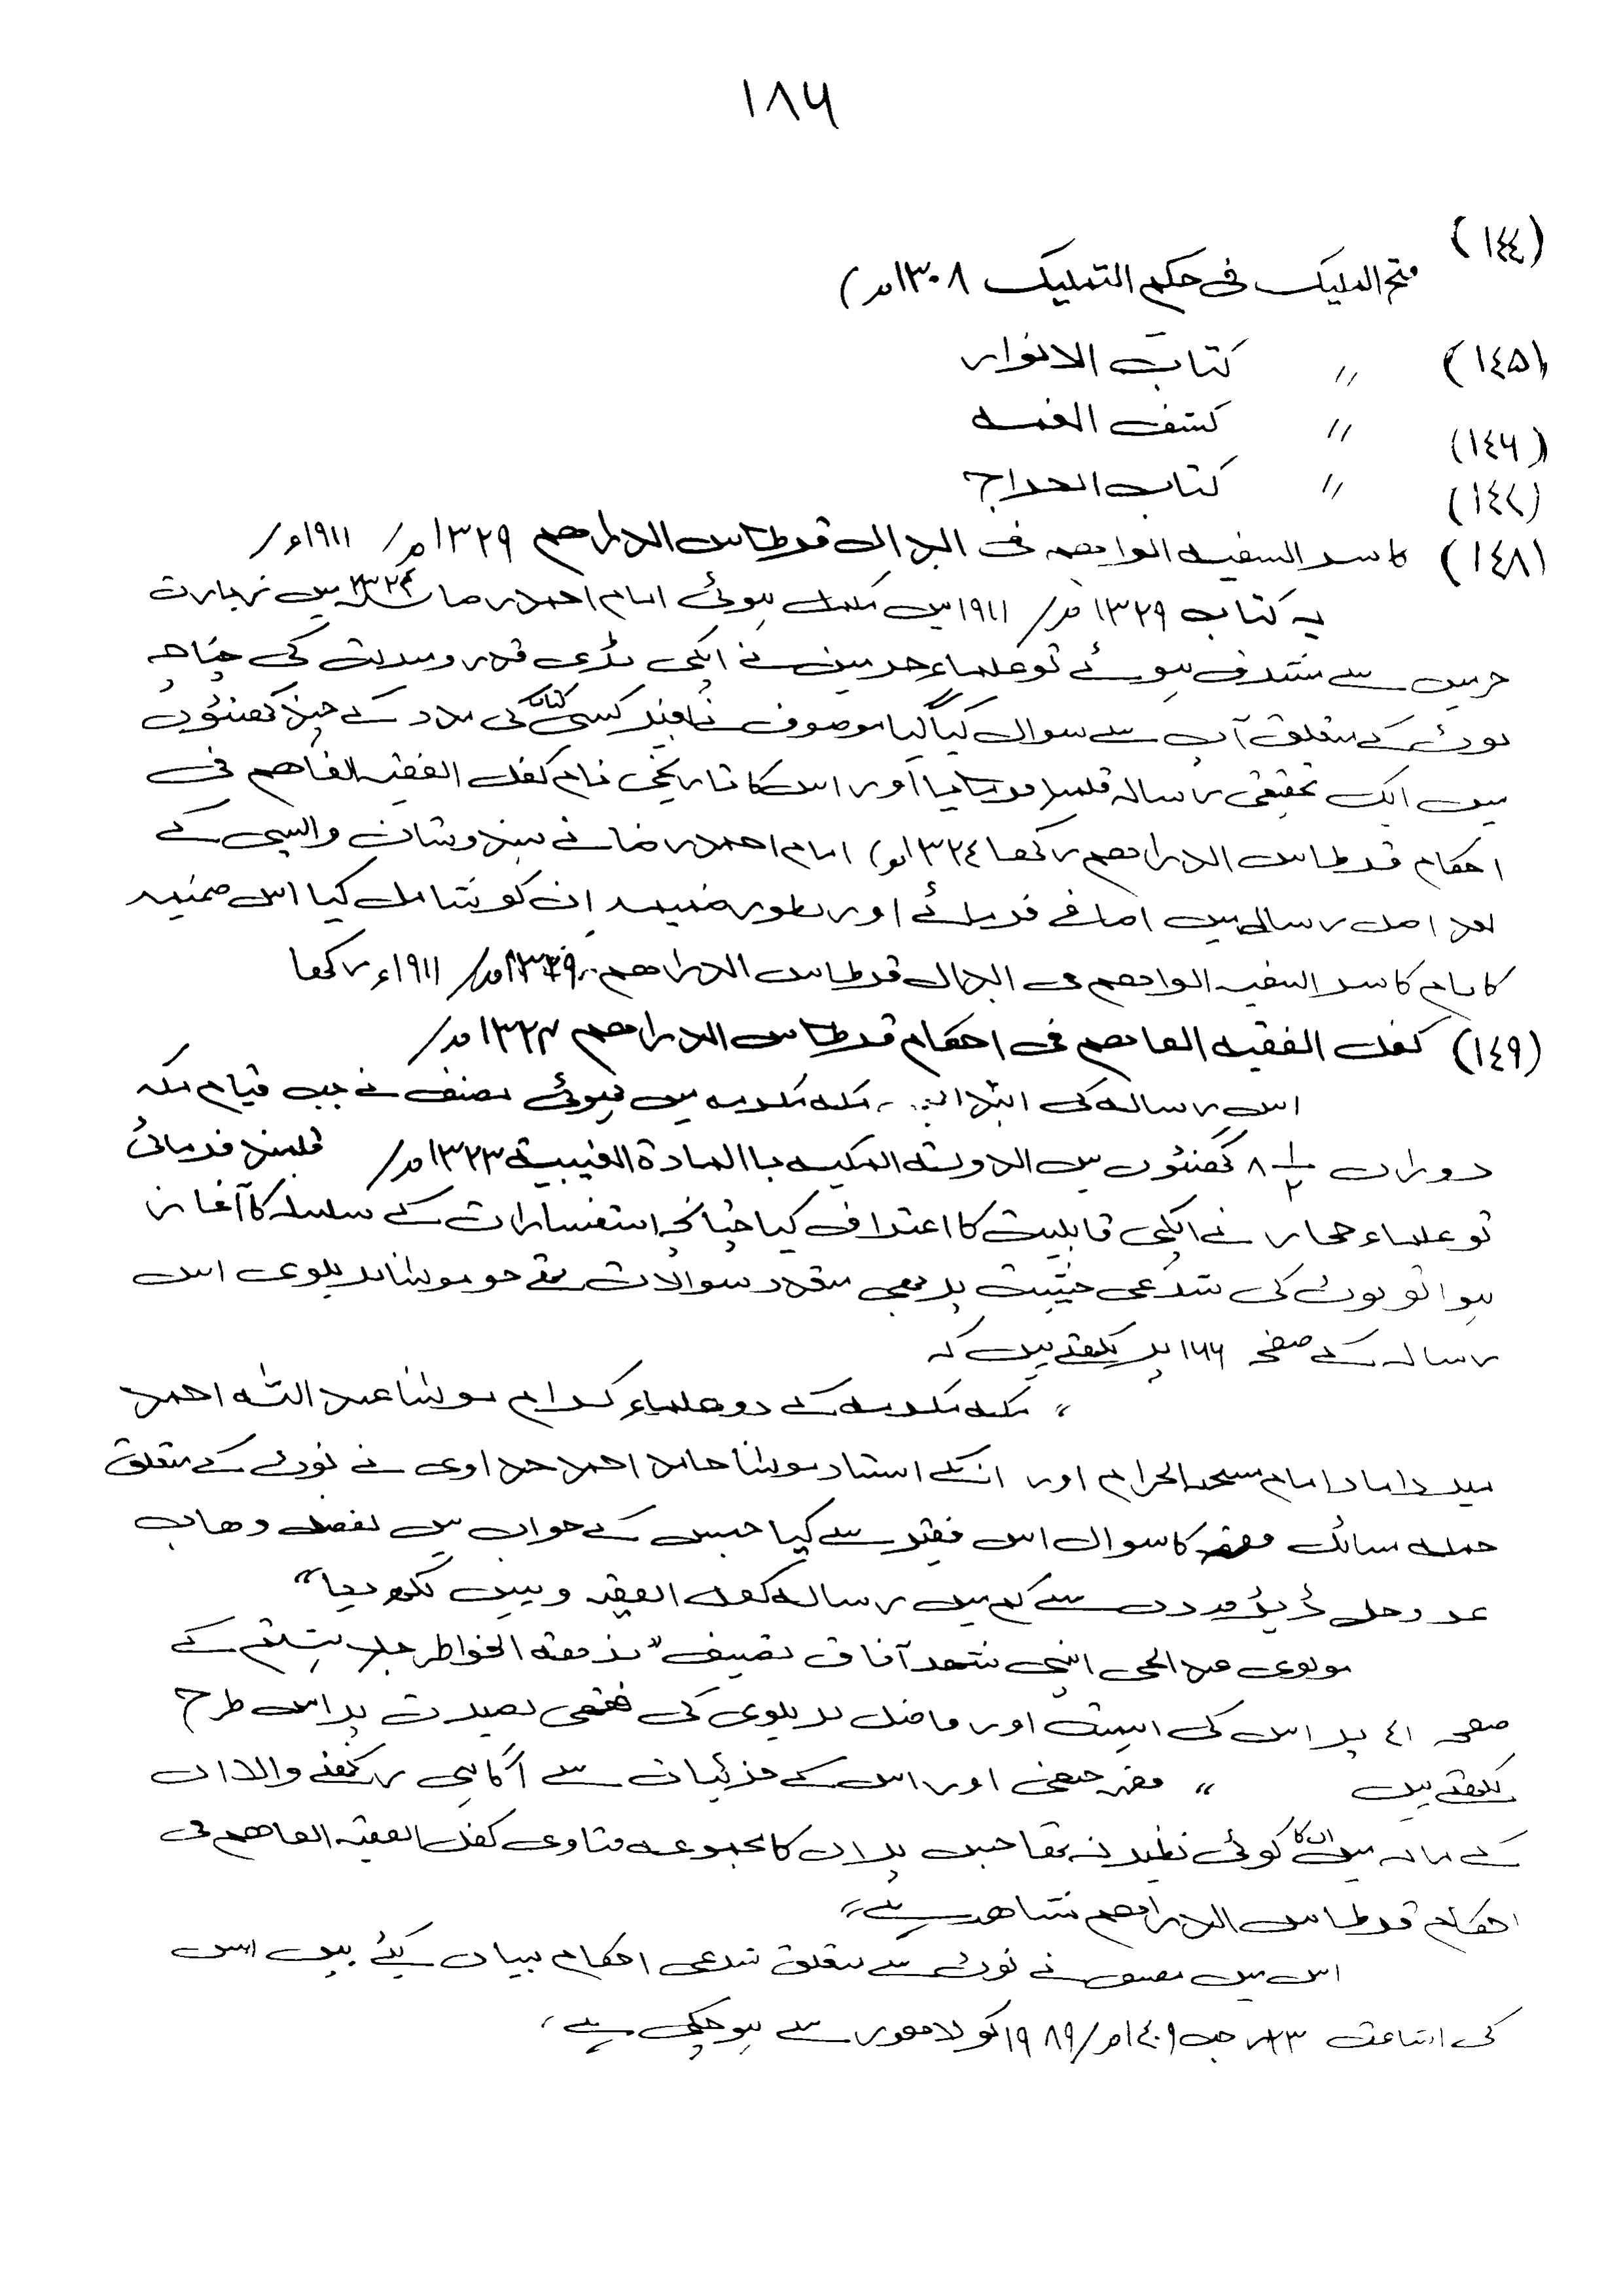 ۱۸۶
(۱٤٤)
فتح الملیک فی حکم التملیک ۱۳۰۸ھ)
(۱٤۵) // کتاب الانوار
(۱٤۶) // کشف الغمہ
(۱٤۷) // کتاب الحراج
(۱٤۸) کاسر السفیہ الواھم فی ابدال قرطاس الدراھم ۱۳۲۹ھ/ ۱۹۱۱ء/
یہ کتاب ۱۳۲۹ھ/ ۱۹۱۱ میں مکمل ہوئی امام احمد رضا ۱۳۲۴ میں زیارت
حرمین سے مشرف ہوئے تو علماء حرمین نے انکی بڑی قدر و منزلت کی چناچہ
نوٹ کے متعلق آپ سے سوال کیا گیا موصوف نے بغیر کسی کتاب کی مدد کے چند گھنٹوں
میں ایک تحقیقی رسالہ قلمبند فرمایا اور اس کا تاریخی نام کفل الفقیہ الفاھم فی
احکام قرطاس الدراھم رکھا ۱۳۲٤ھ) امام احمد رضا نے ہندوستان واپسی کے
بعد اصل رسالہ میں اضافے فرمائے اور بطور ضمیمہ ان کو شامل کیا اس ضمیمہ
کا نام کاسر السفیہ الواھم فی ابدال قرطاس الدراھم ۱۳۲۹ھ/ ۱۹۱۱ء رکھا
(۱٤۹) کفل الفقیہ الفاھم فی احکام قرطاس الدراھم ۱۳۲۴ھ/
اس رسالہ کی ابتدا مکہ مکرمہ میں ہوئی مصنف نے جب قیام مکہ
دوران ۸ ۱/۲ گھنٹوں میں الدولتہ المکیہ باالمادۃ الغیبیۃ ۱۳۲۳ھ/ قلمبند فرمائی
تو علماء حجاز نے انکی قابلیت کا اعتراف کیا چنانچہ استفسارات کے سلسلہ کا آغاز
ہوا تو نوٹ کی شرعی حثیت پر بھی متعدد سوالات تھے جو مولانا بریلوی اس
رسالہ کے صفحہ ۱۶۶ پر لکھتے ہیں کہ
" مکہ مکرمہ کے دو علماء کرام مولانا عبداللہ احمد
میر داماد امام مسجد الحرام اور انکے استاد مولانا حامد احمد جداوی نے نوٹ کے متعلق
جملہ مسائل فقہہ کا سوال اس فقیر سے کیا جس کے جواب میں بفضل وھاب
عزوجل ڈیڑھ دن سے کم میں رسالہ کفل الفقیہ وہیں لکھ دیا"
مولوی عبدالحی اپنی شھرآفاق تصنیف" نزھتہ الخواطر جلد ہشتم کے
صفحہ ٤۱ پر اس کی اہمیت اور فاضل بریلوی کی فقہی بصیرت پر اس طرح
لکھتے ہیں " فقہ حنفی اور اس کے جزئیات سے آگاہی رکھنے والا ان
کے زمانہ میں ان کا کوئی نظیر نہ تھا جس پر ان کا مجموعہ فتاوی کفل الفقیہ الفاھم فی
احکام قرطاس الدراھم شاھد ہے"
اس میں مصنف نے نوٹ سے متعلق شرعی احکام بیان کیئے ہیں اس
کی اشاعت ۲۳ رجب ۱٤۰۹ھ/ ۱۹۸۹ کو لاھور سے ہو چکی ہے،